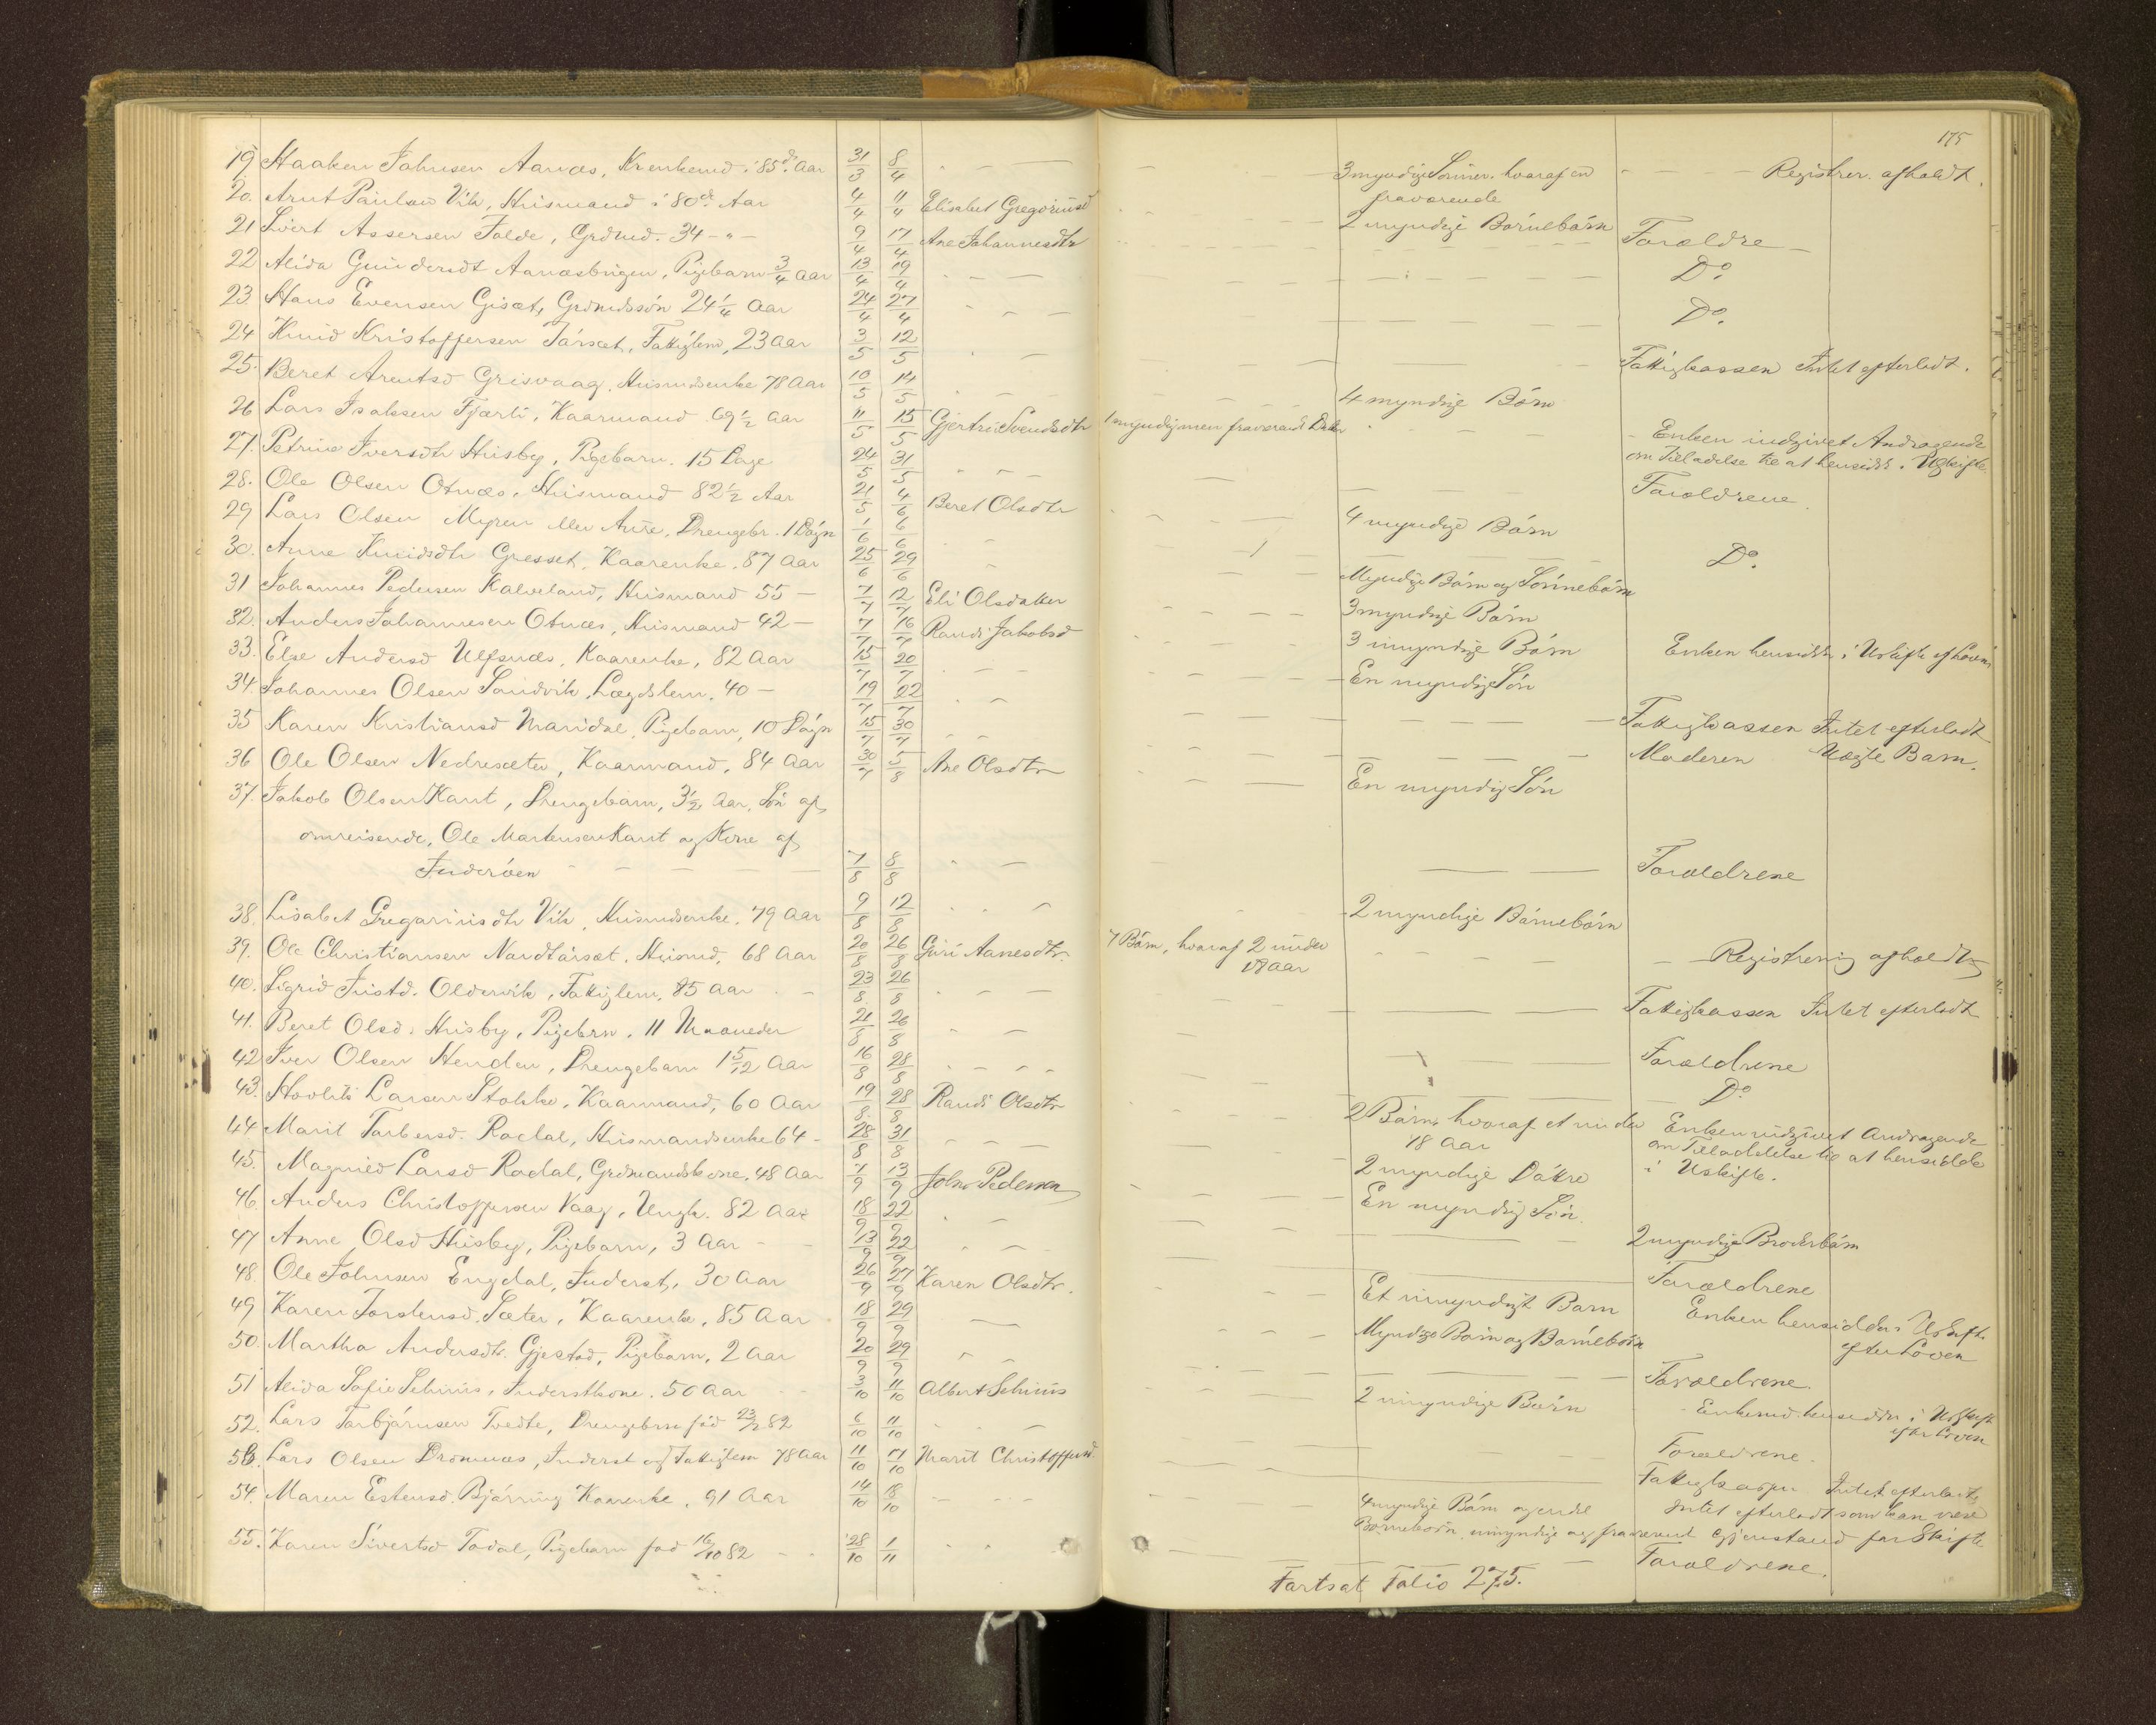 175
19. Haaken Johnsen Aanæs, Krenkemd. i 85de Aar 31/3 8/4 3 myndige Sönner, hvoraf en Registrer. afholdt.
fraværende
20. Arnt Paulsen Vik, Husmand i 80de Aar 4/4 11/4 Elisabet Gregoriusd 2 myndige Börnebörn
21 Sivert Assersen Folde, Grdmd. 34 -"- 9/4 17/4 Ane Johannesdtr Forældre
22 Alida Gundersdt Aanæsbugen, Pigebarn 3/4 Aar 13/4 19/4 Do.
23. Hans Evensen Gisæt, Grdmdssön 24 1/4 Aar 24/4 27/4 Do.
24 Knud Kristoffersen Törsæt, Fattiglem, 23 Aar 3/5 12/5 Fattigkassen Intet efterladt.
25. Beret Arentsd Grisvaag, Husmdsenke 78 Aar 10/5 14/5 4 myndige Börn
26 Lars Isaksen Fjærli, Kaarmand 69 1/2 Aar 11/5 15/5 Gjertru Svendsdtr 1 myndig men fraværend Datter Enken indgivet Andragende
om Tilladelse til at hensidde i Uskifte.
27. Petrine Iversdtr Husby, Pigebarn. 15 Dage 24/5 31/5 Forældrene
28. Ole Olsen Otnæs, Husmand 82 1/2 Aar 21/5 4/6 Beret Olsdtr 4 myndige Börn
29 Lars Olsen Myren eller Aure, Drengebr. 1 Dögn 1/6 6/6 Do.
30. Anne Knudsdtr Gresset, Kaarenke. 87 Aar 25/6 29/6 Myndige Börn og Sönnebörn
31 Johannes Pedersen Kalveland, Husmand 55 - 7/7 12/7 Eli Olsdatter 3 myndige Börn
32. Anders Johannesen Otnæs, Husmand 42 - 7/7 16/7 Randi Jakobsd 3 umyndige Börn Enken hensidder i Uskifte ef Loven
33. Else Andersd Ulfsnæs, Kaarenke, 82 Aar 15/7 20/7 En myndig Sön
34. Johannes Olsen Sandvik, Lægdslem. 40 - 19/7 22/7 Fattigkassen Intet efterladt
35 Karen Kristiansd Maridal, Pigebarn, 10 Dögn 15/7 30/7 Moderen Uægte Barn.
36 Ole Olsen Nedresæter, Kaarmand, 84 Aar 30/7 5/8 Ane Olsdtr En myndig Sön
37. Jakob Olsen Kant, Drengebarn, 3 1/2 Aar, Sön af
omreisende, Ole Martensen Kant og Kone af
Inderöen 7/8 8/8 Forældrene
38. Lisabet Gregoriusdtr Vik, Husmdsenke. 79 Aar 9/8 12/8 2 myndige Börnebörn
39. Ole Christiansen Nordtörsæt, Husmd, 68 Aar 20/8 26/8 Guri Aanesdtr. 7 Börn, hvoraf 2 under Registrering afholdt
18 Aar
40. Sigrid Justd. Oldervik, Fattiglem, 85 Aar 23/8 26/8 Fattigkassen Intet efterladt
41. Beret Olsd. Husby, Pigebrn. 11 Maaneder 21/8 26/8 Forældrene
42 Iver Olsen Henden, Drengebarn 1 5/12 Aar 16/8 28/8 Do
43. Larsen Stokke, Kaarmand, 60 Aar 19/8 28/8 Randi Olsdtr 2 Börn, hvoraf et under Enken indgivet Andragende
18 Aar om Tilladelse til at hensidde
i Uskifte.
44 Marit Torbersd. Rodal, Husmandsenke 64 - 28/8 31/8 2 myndige Döttre
45. Magnild Larsd Rodal, Grdmandskone. 48 Aar 7/9 13/9 John Pedersen En myndig Sön.
46. Anders Christoffersen Vaag, Ungk. 82 Aar 18/9 22/9 2 myndige Broderbörn
47 Anne Olsd Husby, Pigebarn, 3 Aar 13/9 22/9 Forældrene
48. Ole Johnsen Engdal, Inderst, 30 Aar 26/9 27/9 Karen Olsdtr. Et umyndigt Barn Enken hensidder i Uskifte
efter Loven
49 Karen Torstensd. Sæter, Kaarenke, 85 Aar 18/9 29/9 Myndige Börn og Börnebörn
50. Martha Andersdtr. Gjestad, Pigebarn, 2 Aar 20/9 29/9 Forældrene.
51 Alida Sofie Schiüs, Inderstkone. 50 Aar 3/10 11/10 Albert Schiüs 2 umyndige Börn Enkemd. hensidder i Uskifte
efter Loven
52. Lars Torbjörnsen Tvedte, Drengebrn föd 23/2 82 6/10 11/10 Forældrene.
53. Lars Olsen Dromnæs, Inderst og Fattiglem 78 Aar 11/10 17/10 Marit Christoffersd. Fattigkassen Intet efterladt
54. Maren Estensd. Björring Kaarenke. 91 Aar 14/10 18/10 4 myndige Börn og endel Intet efterladt som kan være
Börnebörn umyndige og fraværend Gjenstand for Skifte
55. Karen Sivertsd Todal, Pigebarn föd 16/10 82 28/10 1/11 Forældrene.
Fortsat Folio 275.